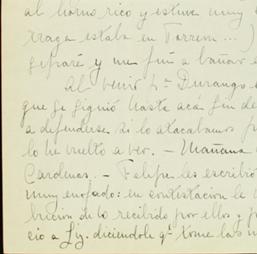 al horno rico y estuve muy
estaba en Torreon ...)
y me fuí a bañar
al venir pa Durango
que se siguió hasta acá
a defenderse si lo atacabamos
lo he vuelto a ver. — Mañana
Cardenas. — Felipe les escribió
muy enojado: en contestacion le
de lo recibido por ellos y
cio a Lij. diciendole qe tome las